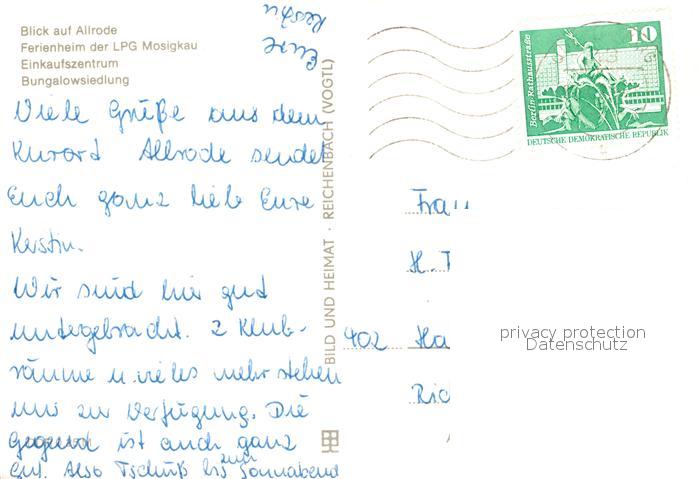 Blick auf Allrode
Ferienheim der LPG Mosigkau
Einkaufszentrum
Bungalowsiedlung
Viele Grüße aus dem
Kurort Allrode sendet
Euch ganz liebe Eure
Kerstin.
Wir sind hier gut
untergebracht. 2 Klub-
räume u. vieles mehr stehen
uns zur Verfügung. Die
Gegend ist auch ganz
gut. Also Tschüß bis zum Sonnabend
Eure
Kerstin
BILD UND HEIMAT · REICHENBACH (VOGTL)
10
Berlin-Rathausstraße
DEUTSCHE DEMOKRATISCHE REPUBLIK
Frau
H. T
402 Ha
Ric
privacy protection
Datenschutz